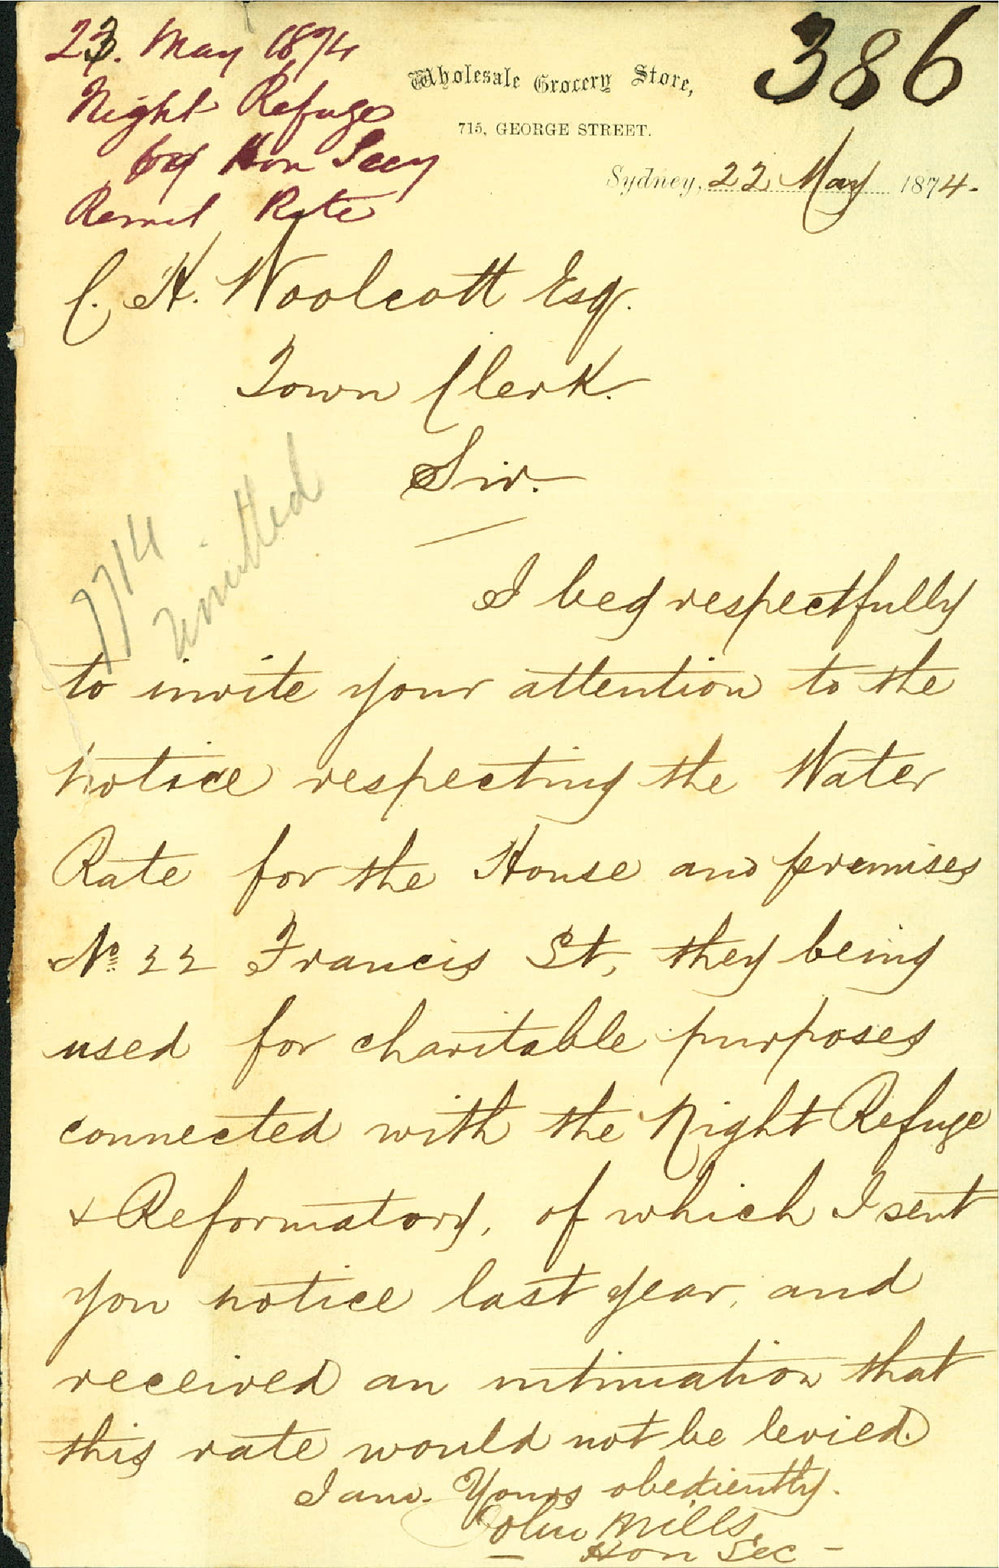 386
23. May 1874
Night Refuge
by Hon Secy
Remit Rate
Wholesale Grocery Store,
715, GEORGE STREET.
Sydney, 22 May 1874.
C. H. Woolcott Esqr.
Town Clerk.
Sir.
I beg respectfully
to invite your attention to the
notice respecting the Water
Rate for the House and premises
No. 22 Francis St, they being
used for charitable purposes
connected with the Night Refuge
& Reformatory, of which I sent
you notice last year, and
received an intimation that
this rate would not be levied.
I am. Yours obediently.
Mills.
Hon Sec